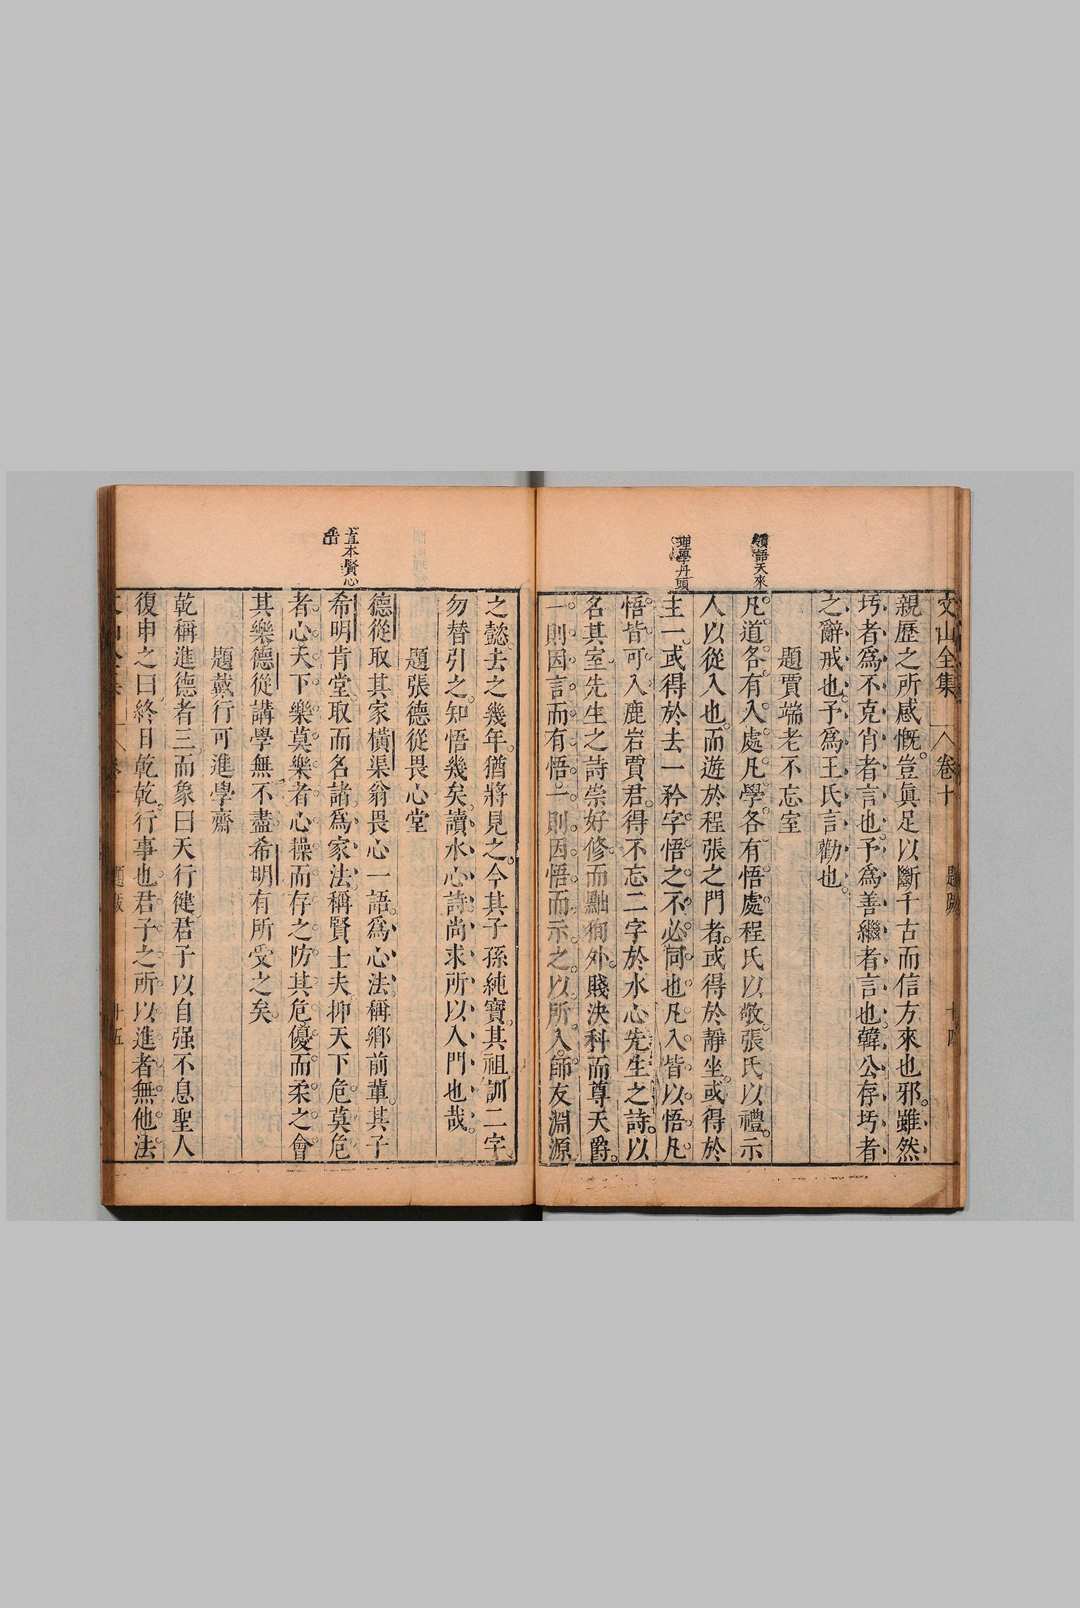 文山全集 卷十 題跋 十四
親歷之所感慨豈眞足以斷千古而信方來也邪雖然
圬者爲不克肖者言也予爲善繼者言也韓公存圬者
之辭戒也予爲王氏言勸也
題賈端老不忘室
領語天來
凡道各有入處凡學各有悟處程氏以敬張氏以禮示
人以從入也而遊於程張之門者或得於靜坐或得於
理學丹頭
主一或得於去一矜字悟之不必同也凡入皆以悟凡
悟皆可入鹿岩賈君得不忘二字於水心先生之詩以
名其室先生之詩崇好修而黜徇外賤決科而尊天爵
一則因言而有悟一則因悟而示之以所入師友淵源
之懿去之幾年猶將見之今其子孫純寶其祖訓二字
勿替引之知悟幾矣讀水心詩尚求所以入門也哉
題張德從畏心堂
德從取其家橫渠翁畏心一語爲心法稱鄉前輩其子
直本賢心
希明肯堂取而名諸爲家法稱賢士夫抑天下危莫危
者心天下樂莫樂者心操而存之防其危優而柔之會
其樂德從講學無不盡希明有所受之矣
題戴行可進學齋
乾稱進德者三而象曰天行健君子以自强不息聖人
復申之曰終日乾乾行事也君子之所以進者無他法
十五